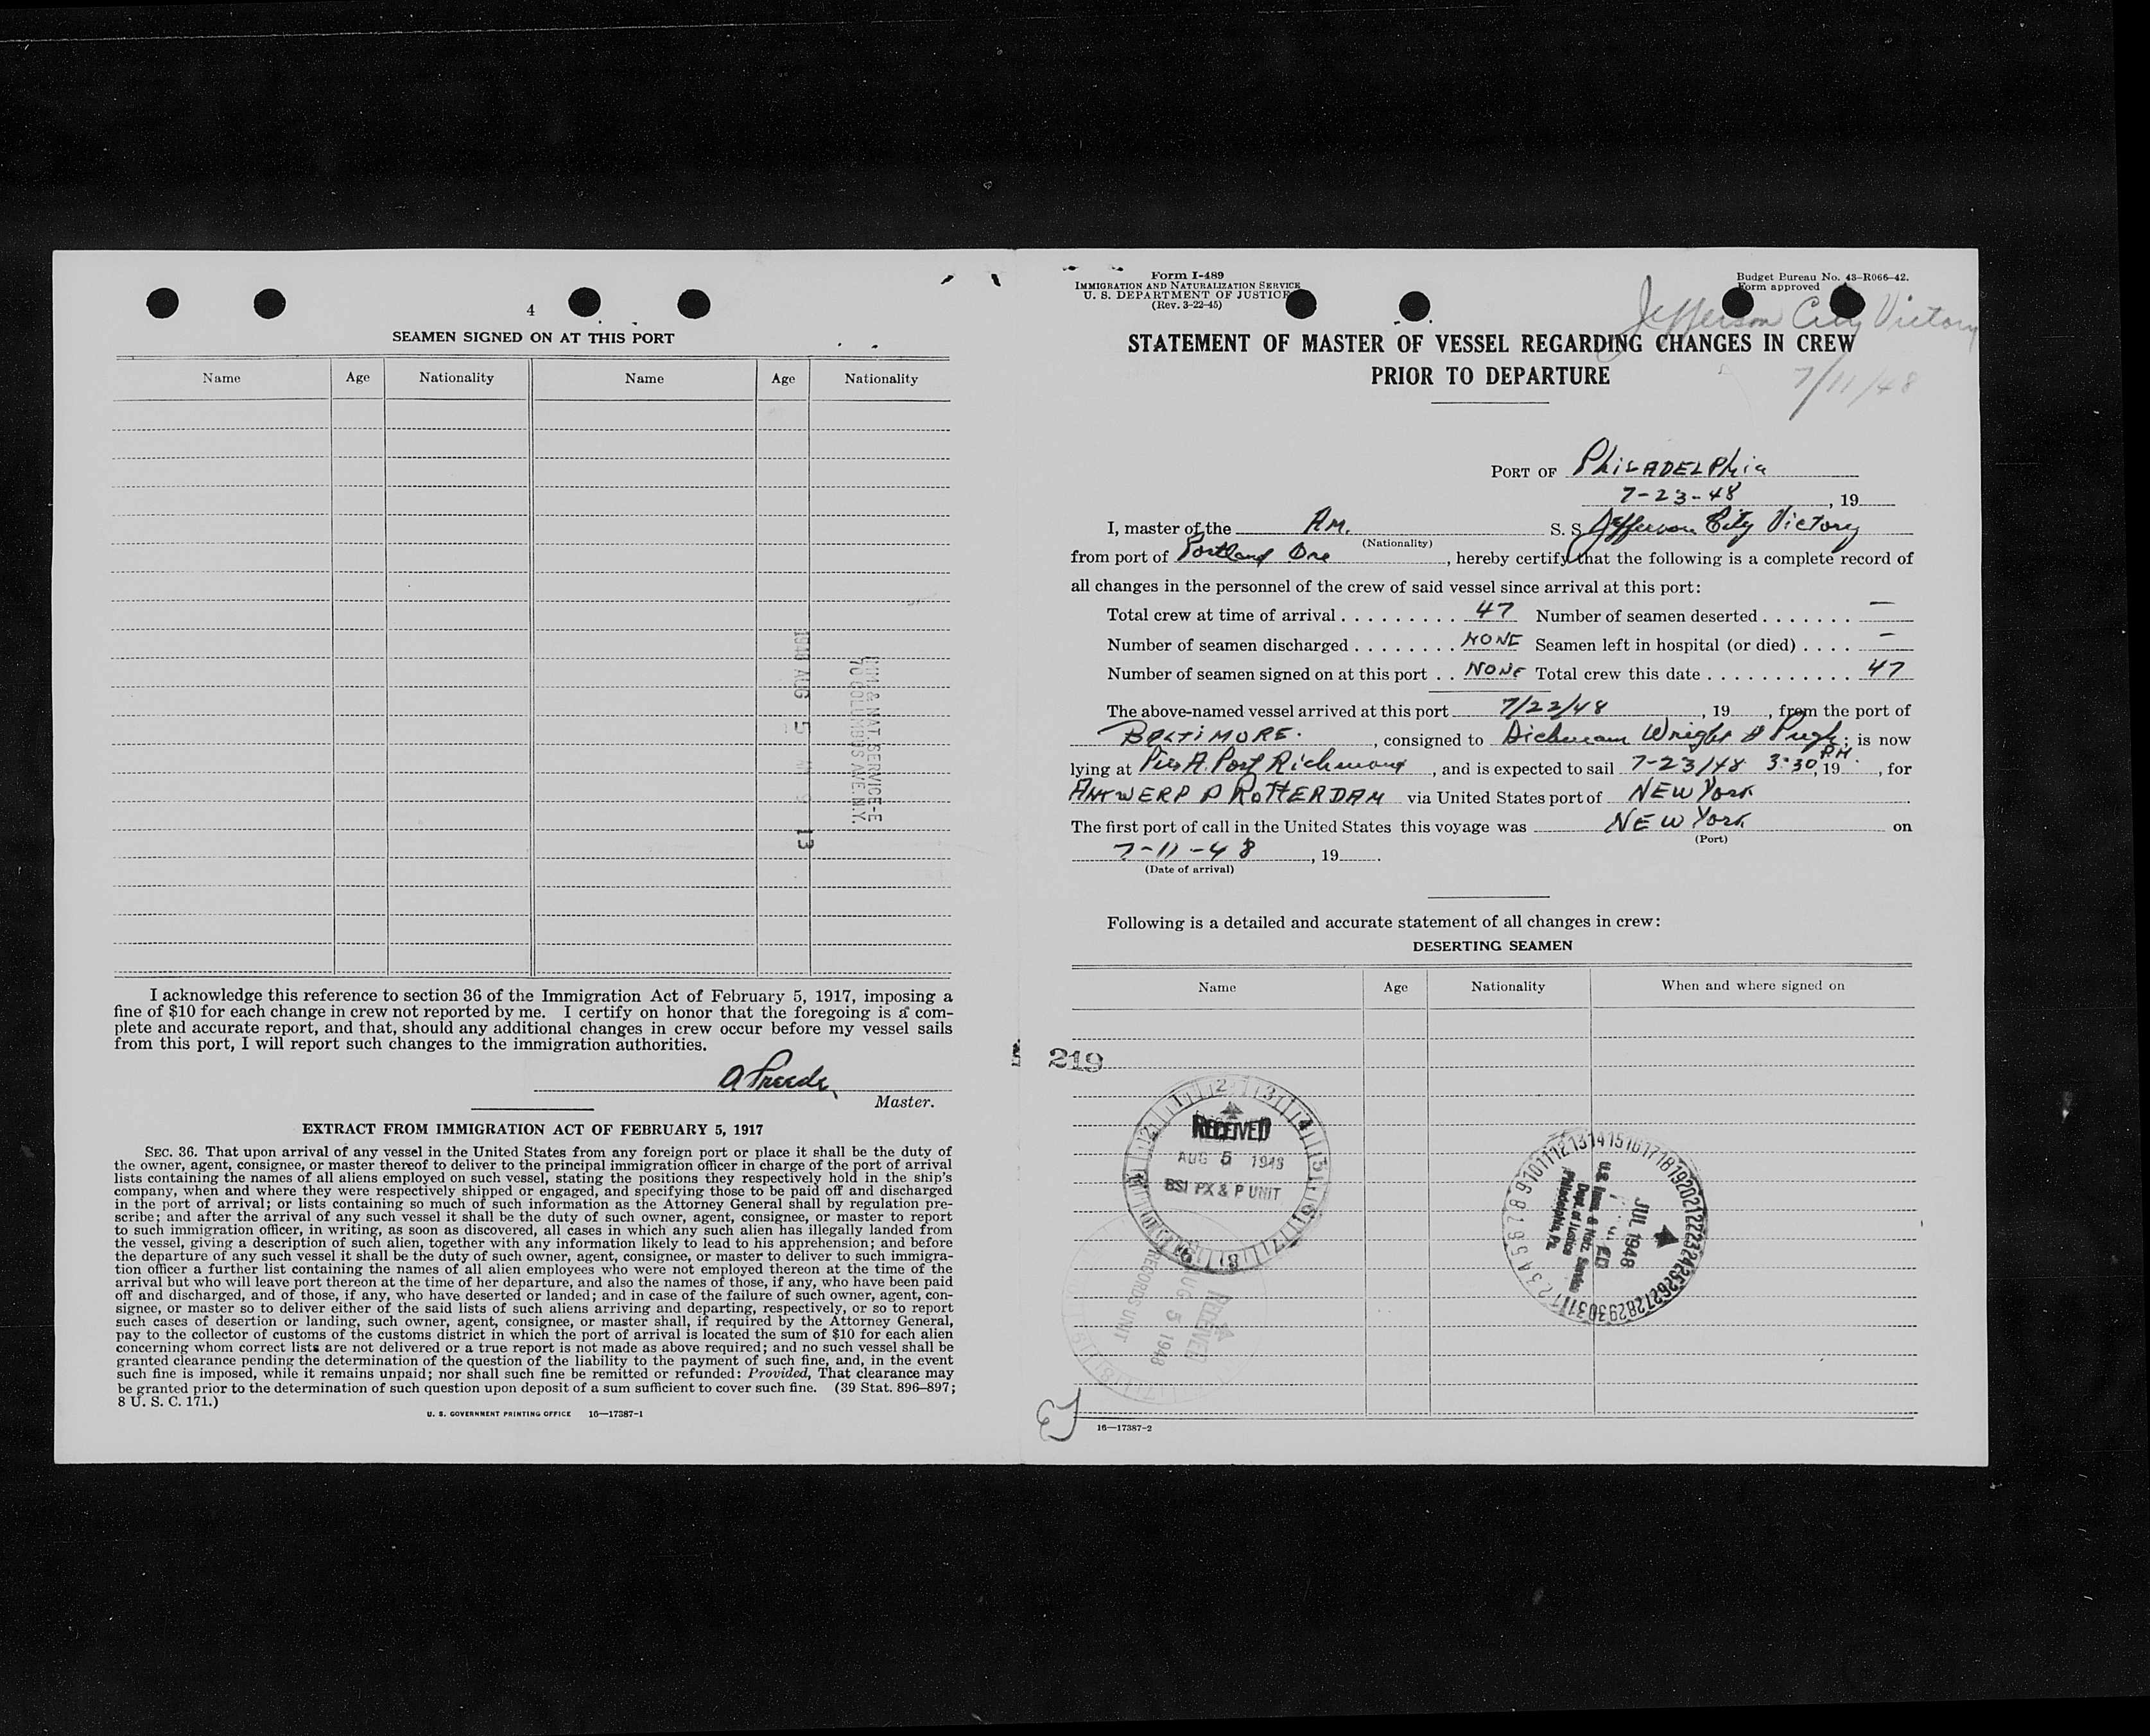 4
SEAMEN SIGNED ON AT THIS PORT
Name Age Nationality Name Age Nationality
1948 AUG 5 13
IMM & NAT. SERVICE-E
70 COLUMBUS AVE. N.Y.
I acknowledge this reference to section 36 of the Immigration Act of February 5, 1917, imposing a
fine of $10 for each change in crew not reported by me. I certify on honor that the foregoing is a com-
plete and accurate report, and that, should any additional changes in crew occur before my vessel sails
from this port, I will report such changes to the immigration authorities.
Master.
EXTRACT FROM IMMIGRATION ACT OF FEBRUARY 5, 1917
SEC. 36. That upon arrival of any vessel in the United States from any foreign port or place it shall be the duty of
the owner, agent, consignee, or master thereof to deliver to the principal immigration officer in charge of the port of arrival
lists containing the names of all aliens employed on such vessel, stating the positions they respectively hold in the ship's
company, when and where they were respectively shipped or engaged, and specifying those to be paid off and discharged
in the port of arrival; or lists containing so much of such information as the Attorney General shall by regulation pre-
scribe; and after the arrival of any such vessel it shall be the duty of such owner, agent, consignee, or master to report
to such immigration officer, in writing, as soon as discovered, all cases in which any such alien has illegally landed from
the vessel, giving a description of such alien, together with any information likely to lead to his apprehension; and before
the departure of any such vessel it shall be the duty of such owner, agent, consignee, or master to deliver to such immigra-
tion officer a further list containing the names of all alien employees who were not employed thereon at the time of the
arrival but who will leave port thereon at the time of her departure, and also the names of those, if any, who have been paid
off and discharged, and of those, if any, who have deserted or landed; and in case of the failure of such owner, agent, con-
signee, or master so to deliver either of the said lists of such aliens arriving and departing, respectively, or so to report
such cases of desertion or landing, such owner, agent, consignee, or master shall, if required by the Attorney General,
pay to the collector of customs of the customs district in which the port of arrival is located the sum of $10 for each alien
concerning whom correct lists are not delivered or a true report is not made as above required; and no such vessel shall be
granted clearance pending the determination of the question of the liability to the payment of such fine, and, in the event
such fine is imposed, while it remains unpaid; nor shall such fine be remitted or refunded: Provided, That clearance may
be granted prior to the determination of such question upon deposit of a sum sufficient to cover such fine. (39 Stat. 896–897;
8 U. S. C. 171.)
U. S. GOVERNMENT PRINTING OFFICE 16—17387-1
Form I-489
IMMIGRATION AND NATURALIZATION SERVICE
U. S. DEPARTMENT OF JUSTICE
(Rev. 3-22-45)
Budget Bureau No. 43–R066–42.
Form approved
Jefferson City Victory
STATEMENT OF MASTER OF VESSEL REGARDING CHANGES IN CREW
PRIOR TO DEPARTURE
7/11/48
PORT OF PhiLADELPhia
7-23-48, 19
I, master of the Am. S. S. Jefferson City Victory
(Nationality)
from port of Portland Ore, hereby certify that the following is a complete record of
all changes in the personnel of the crew of said vessel since arrival at this port:
Total crew at time of arrival . . . . . . . . . 47 Number of seamen deserted . . . . . . . —
Number of seamen discharged . . . . . . . . NONE Seamen left in hospital (or died) . . . . —
Number of seamen signed on at this port . . NONE Total crew this date . . . . . . . . . . . 47
The above-named vessel arrived at this port 7/22/48, 19, from the port of
BALTIMORE., consigned to Dichmann Wright & Pugh; is now
lying at Pier A. Port Richmond, and is expected to sail 7-23/48 3:30 PM, 19, for
ANTWERP & ROTTERDAM via United States port of NEW York
The first port of call in the United States this voyage was NEW York on
(Port)
7-11-48, 19.
(Date of arrival)
Following is a detailed and accurate statement of all changes in crew:
DESERTING SEAMEN
Name Age Nationality When and where signed on
219
RECEIVED
AUG 5 1948
BSI PX & P UNIT
RECEIVED
AUG 5 1948
RECORDS UNIT
JUL 1948
U.S. Imm. & Natz. Service
Dept. of Justice
Philadelphia, Pa.
16—17387-2